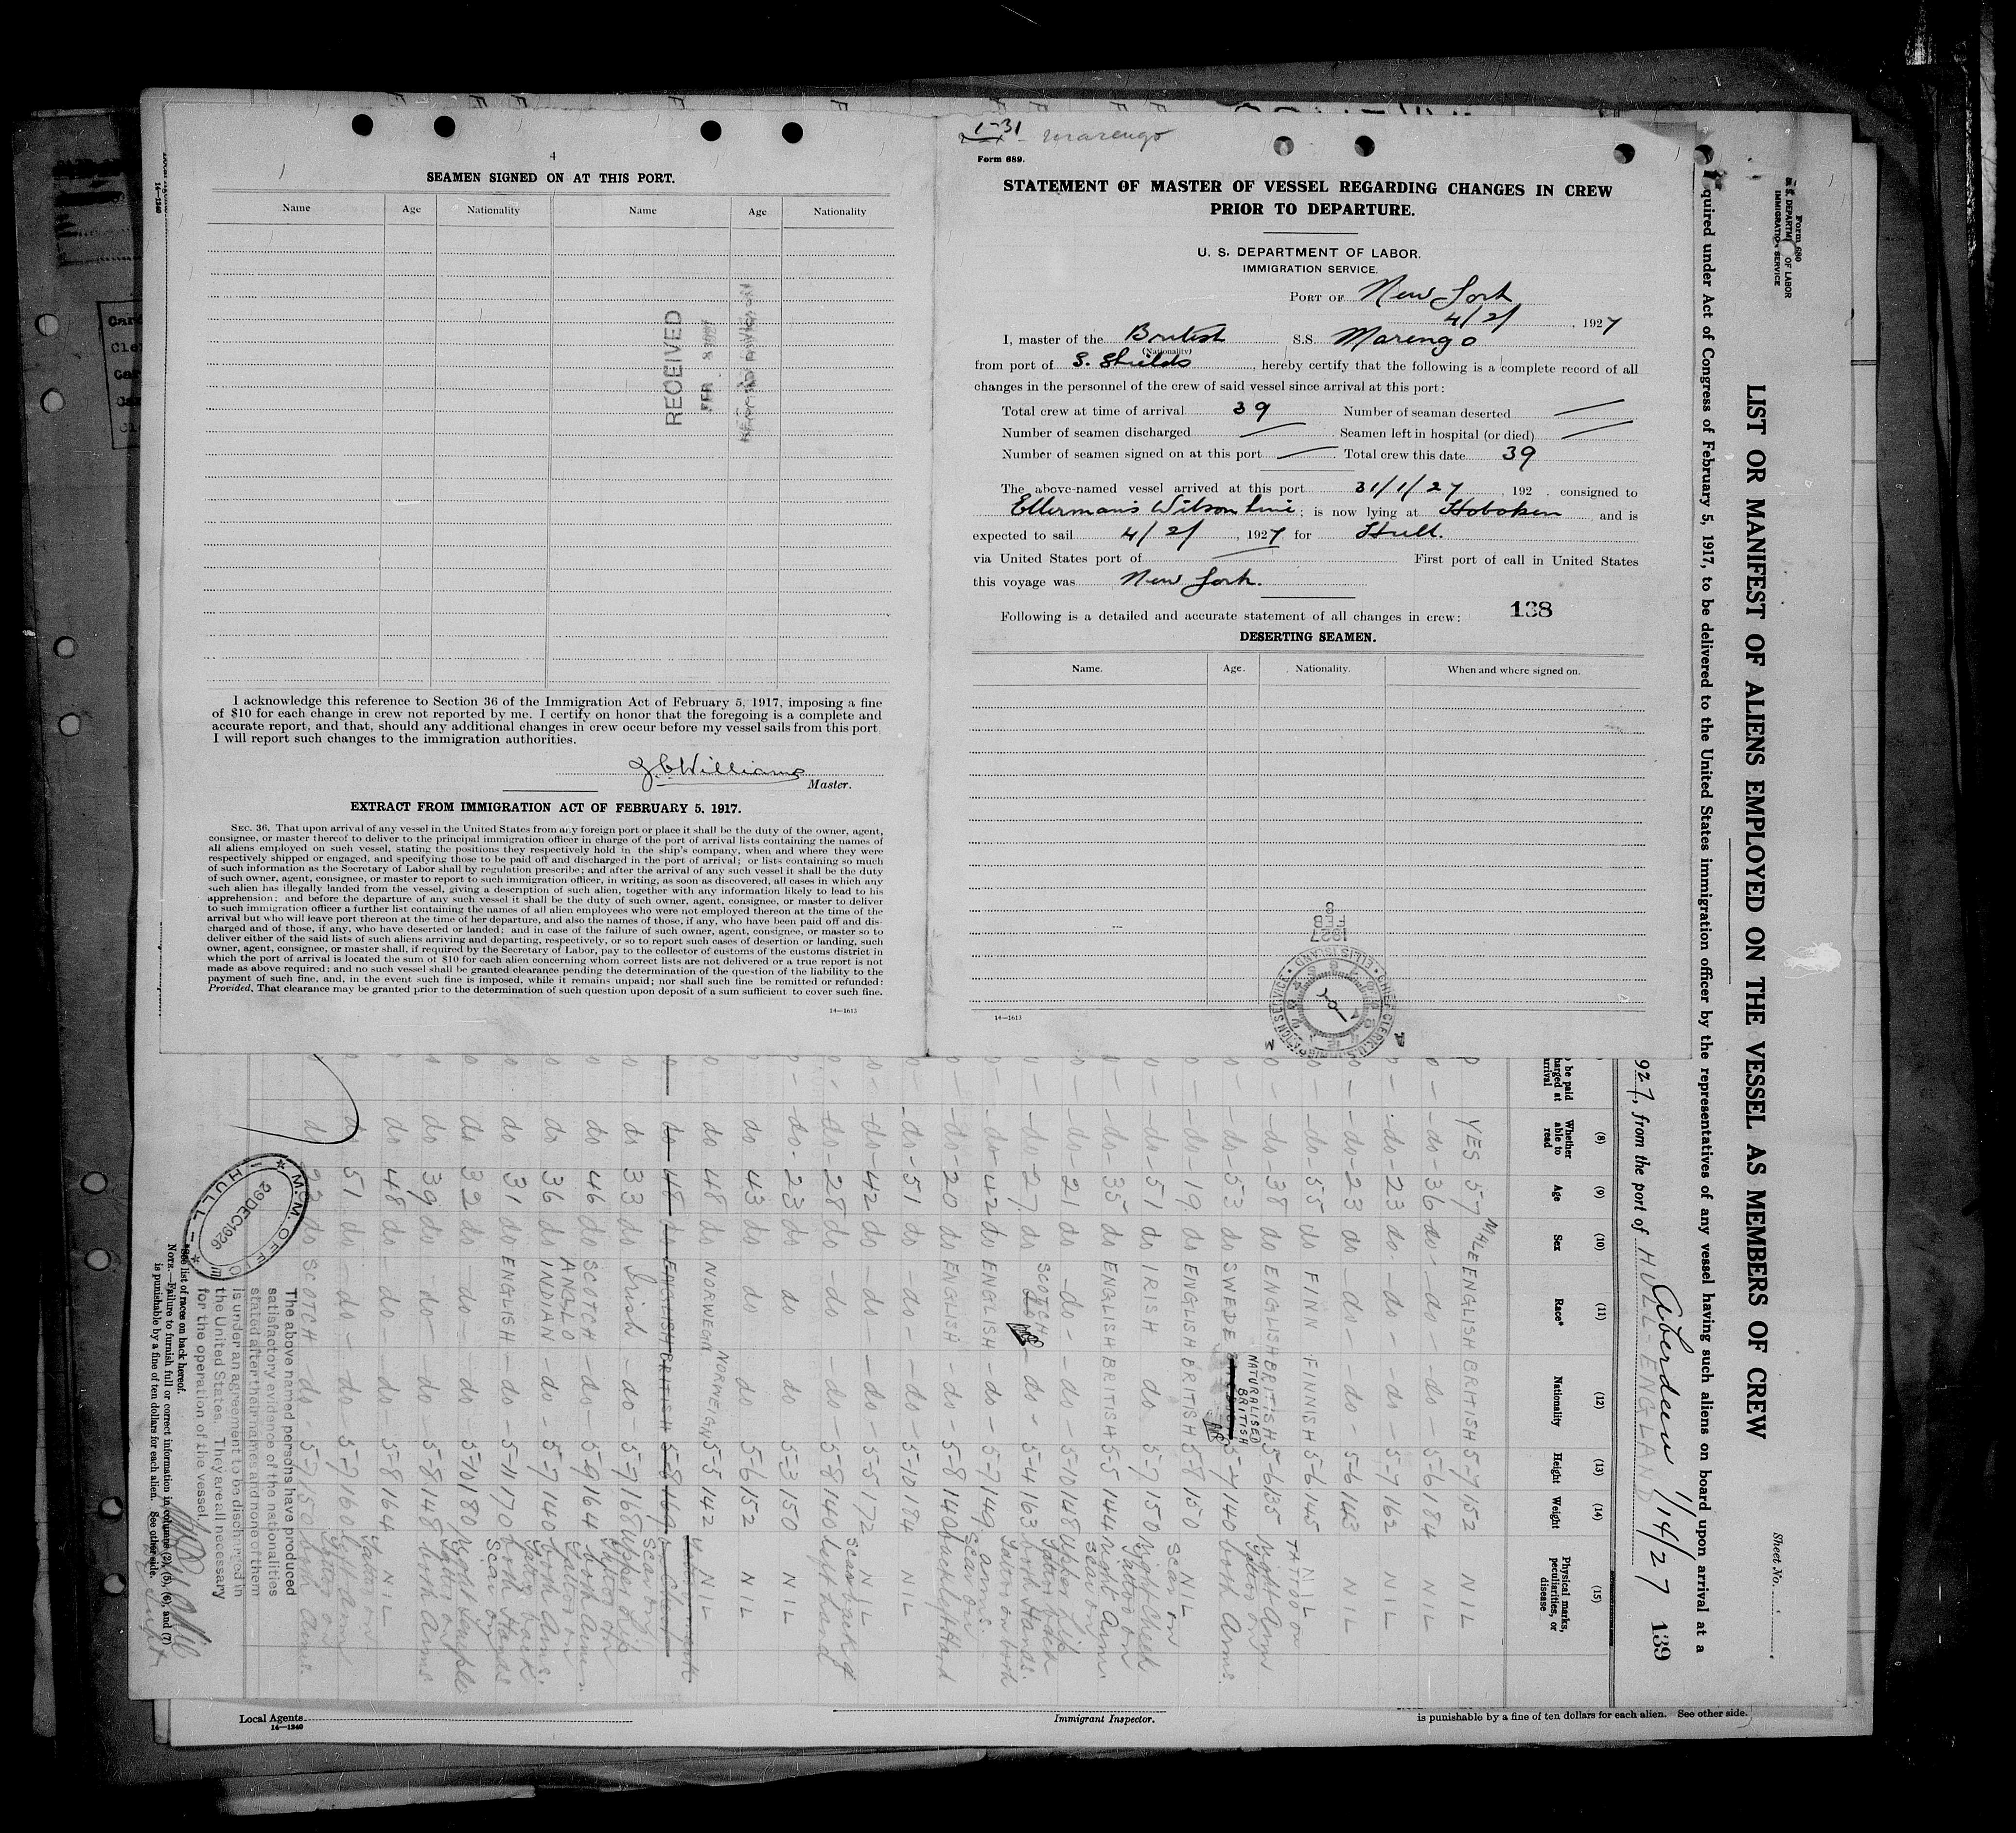 4
SEAMEN SIGNED ON AT THIS PORT.
Name Age Nationality Name Age Nationality
RECEIVED
FEB 8
I acknowledge this reference to Section 36 of the Immigration Act of February 5, 1917, imposing a fine
of $10 for each change in crew not reported by me. I certify on honor that the foregoing is a complete and
accurate report, and that, should any additional changes in crew occur before my vessel sails from this port,
I will report such changes to the immigration authorities.
J. C. Williams
Master.
EXTRACT FROM IMMIGRATION ACT OF FEBRUARY 5, 1917.
SEC. 36. That upon arrival of any vessel in the United States from any foreign port or place it shall be the duty of the owner, agent,
consignee, or master thereof to deliver to the principal immigration officer in charge of the port of arrival lists containing the names of
all aliens employed on such vessel, stating the positions they respectively hold in the ship's company, when and where they were
respectively shipped or engaged, and specifying those to be paid off and discharged in the port of arrival; or lists containing so much
of such information as the Secretary of Labor shall by regulation prescribe; and after the arrival of any such vessel it shall be the duty
of such owner, agent, consignee, or master to report to such immigration officer, in writing, as soon as discovered, all cases in which any
such alien has illegally landed from the vessel, giving a description of such alien, together with any information likely to lead to his
apprehension; and before the departure of any such vessel it shall be the duty of such owner, agent, consignee, or master to deliver
to such immigration officer a further list containing the names of all alien employees who were not employed thereon at the time of the
arrival but who will leave port thereon at the time of her departure, and also the names of those, if any, who have been paid off and dis-
charged and of those, if any, who have deserted or landed; and in case of the failure of such owner, agent, consignee, or master so to
deliver either of the said lists of such aliens arriving and departing, respectively, or so to report such cases of desertion or landing, such
owner, agent, consignee, or master shall, if required by the Secretary of Labor, pay to the collector of customs of the customs district in
which the port of arrival is located the sum of $10 for each alien concerning whom correct lists are not delivered or a true report is not
made as above required; and no such vessel shall be granted clearance pending the determination of the question of the liability to the
payment of such fine, and, in the event such fine is imposed, while it remains unpaid; nor shall such fine be remitted or refunded:
Provided, That clearance may be granted prior to the determination of such question upon deposit of a sum sufficient to cover such fine.
14—1613
1-31 Marengo
Form 689.
STATEMENT OF MASTER OF VESSEL REGARDING CHANGES IN CREW
PRIOR TO DEPARTURE.
U. S. DEPARTMENT OF LABOR.
IMMIGRATION SERVICE.
PORT OF New York
4/2/, 1927
I, master of the British S.S. Marengo
(Nationality)
from port of S. Shields, hereby certify that the following is a complete record of all
changes in the personnel of the crew of said vessel since arrival at this port:
Total crew at time of arrival 39 Number of seaman deserted —
Number of seamen discharged — Seamen left in hospital (or died) —
Number of seamen signed on at this port — Total crew this date 39
The above-named vessel arrived at this port 31/1/27, 192 . consigned to
Ellermans Wilson Line; is now lying at Hoboken and is
expected to sail 4/2/, 1927 for Hull.
via United States port of — First port of call in United States
this voyage was New York.
Following is a detailed and accurate statement of all changes in crew: 138
DESERTING SEAMEN.
Name. Age. Nationality. When and where signed on.
1927
FEB
14—1613
Form 680
U. S. DEPARTM OF LABOR
IMMIGRATION SERVICE
Sheet No.
LIST OR MANIFEST OF ALIENS EMPLOYED ON THE VESSEL AS MEMBERS OF CREW
quired under Act of Congress of February 5, 1917, to be delivered to the United States immigration officer by the representatives of any vessel having such aliens on board upon arrival at a
927, from the port of HULL-ENGLAND Aberdeen 1/14/27 139
be paid harged at arrival
(8) Whether able to read
(9) Age
(10) Sex
(11) Race*
(12) Nationality
(13) Height
(14) Weight
(15) Physical marks, peculiarities, or disease
YES 57 MALE ENGLISH BRITISH 5-7 152 NIL
do 36 do do do 5-6 184 NIL
do 23 do do do 5-7 162 NIL
do 23 do do do 5-6 143 NIL
do 55 do FINN FINNISH 5-6 145 NIL TATTOO on
do 38 do ENGLISH BRITISH 5-6 135 right arm
do 53 do SWEDE NATURALISED BRITISH 5-7 140 both arms.
do 19 do ENGLISH BRITISH 5-8 130 NIL
do 51 do IRISH do 5-7 150 Scar on right cheek
do 35 do ENGLISH BRITISH 5-5 144 Tattoo on right arm
do 21 do do do 5-10 148 Scar on upper lip
do 27 do SCOTCH do 5-4 163 Tattoo back both hands.
do 42 do ENGLISH do 5-7 149 Tattoo on both arms.
do 20 do ENGLISH do 5-8 140 Scar on back left hand
do 51 do do do 5-10 184 NIL
do 42 do do do 5-5 172 NIL
do 28 do do do 5-8 140 Scar back of left hand
do 23 do do do 5-3 150 NIL
do 43 do do do 5-6 152 NIL
do 48 do NORWEGN NORWEIGN 5-5 142 NIL
do 48 do ENGLISH BRITISH 5-8 169
do 33 do Irish do 5-7 168 Scar on upper lip
do 46 do SCOTCH do 5-9 164 Tattoo on both arms
do 36 do ANGLO INDIAN do 5-7 140 Tattoo on both arms.
do 31 do ENGLISH do 5-11 170 Tattoo back both hands
do 32 do do do 5-10 180 Scar on right temple
do 39 do do do 5-8 148 Tattoo on both arms
do 48 do do do 5-8 164 NIL
do 51 do do do 5-7 160 Tattoo on left arm
do 23 do SCOTCH do 5-7 150 Tattoo on both arms.
The above named persons have produced
satisfactory evidence of the nationalities
stated after their names and none of them
is under an agreement to be discharged in
the United States. They are all necessary
for the operation of the vessel.
M.M. OFFICE
29 DEC 1926
HULL
*See list of races on back hereof.
NOTE.—Failure to furnish full or correct information in columns (2), (5), (6), and (7)
is punishable by a fine of ten dollars for each alien. See other side.
14—1240
Local Agents
14—1240
Immigrant Inspector.
is punishable by a fine of ten dollars for each alien. See other side.